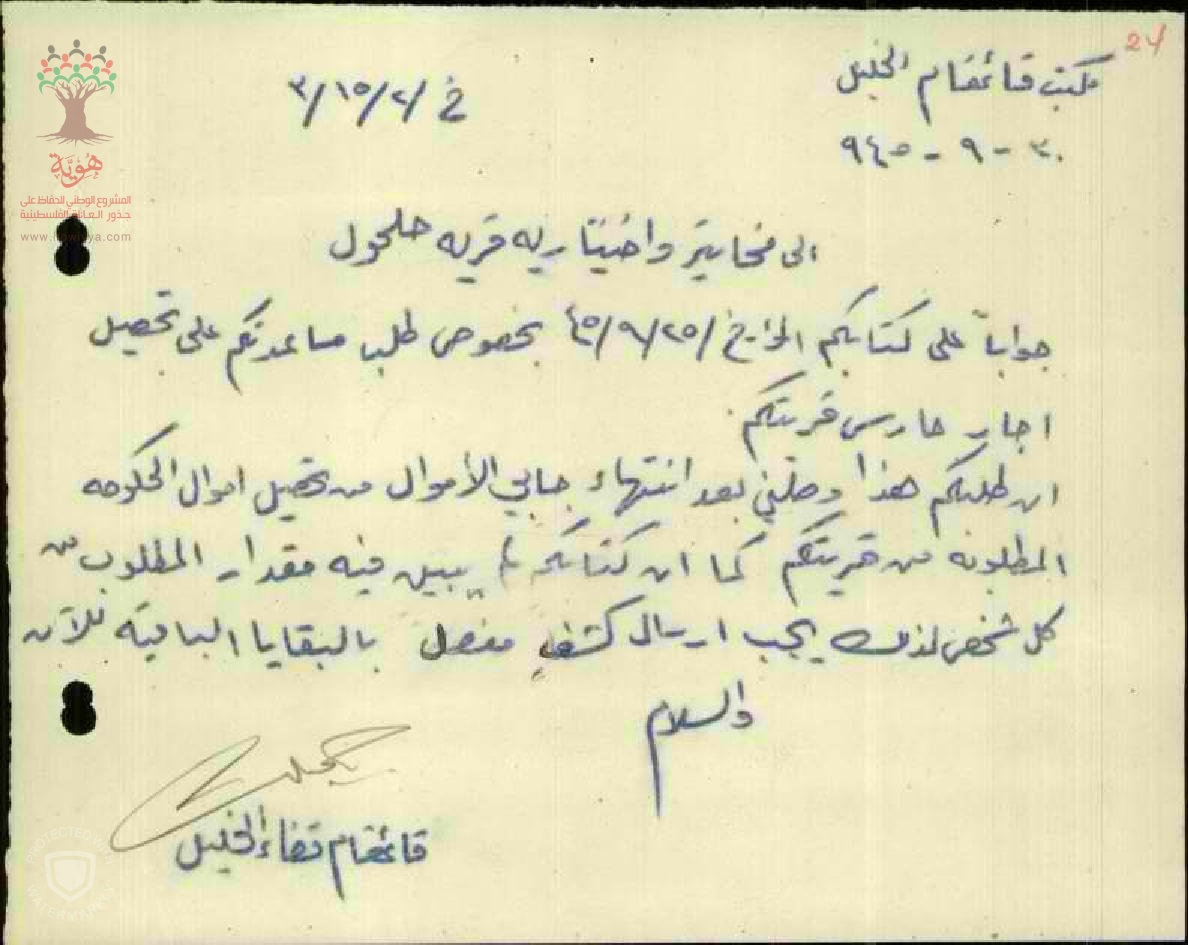 24
مكتب قائمقام الخليل
خ /٢/١٥/٣
٣٠ - ٩ - ٩٤٥
الى مخاتير واختياريه قريه حلحول
جواباً على كتابكم المؤرخ ٤٥/٩/٢٥ بخصوص طلب مساعدتكم على تحصيل
اجار حارس قريتكم
ان طلبكم هذا وصلني بعد انتهاء جابي الأموال من تحصيل اموال الحكومه
المطلوبه من قريتكم كما ان كتابكم لم يبين فيه مقدار المطلوب من
كل شخص لذلك يجب ارسال كشف مفصل بالبقايا الباقية للآن
والسلام
قائمقام قضاء الخليل
هُويَّة
المشروع الوطني للحفاظ على
جذور العائلة الفلسطينية
www.howiyya.com